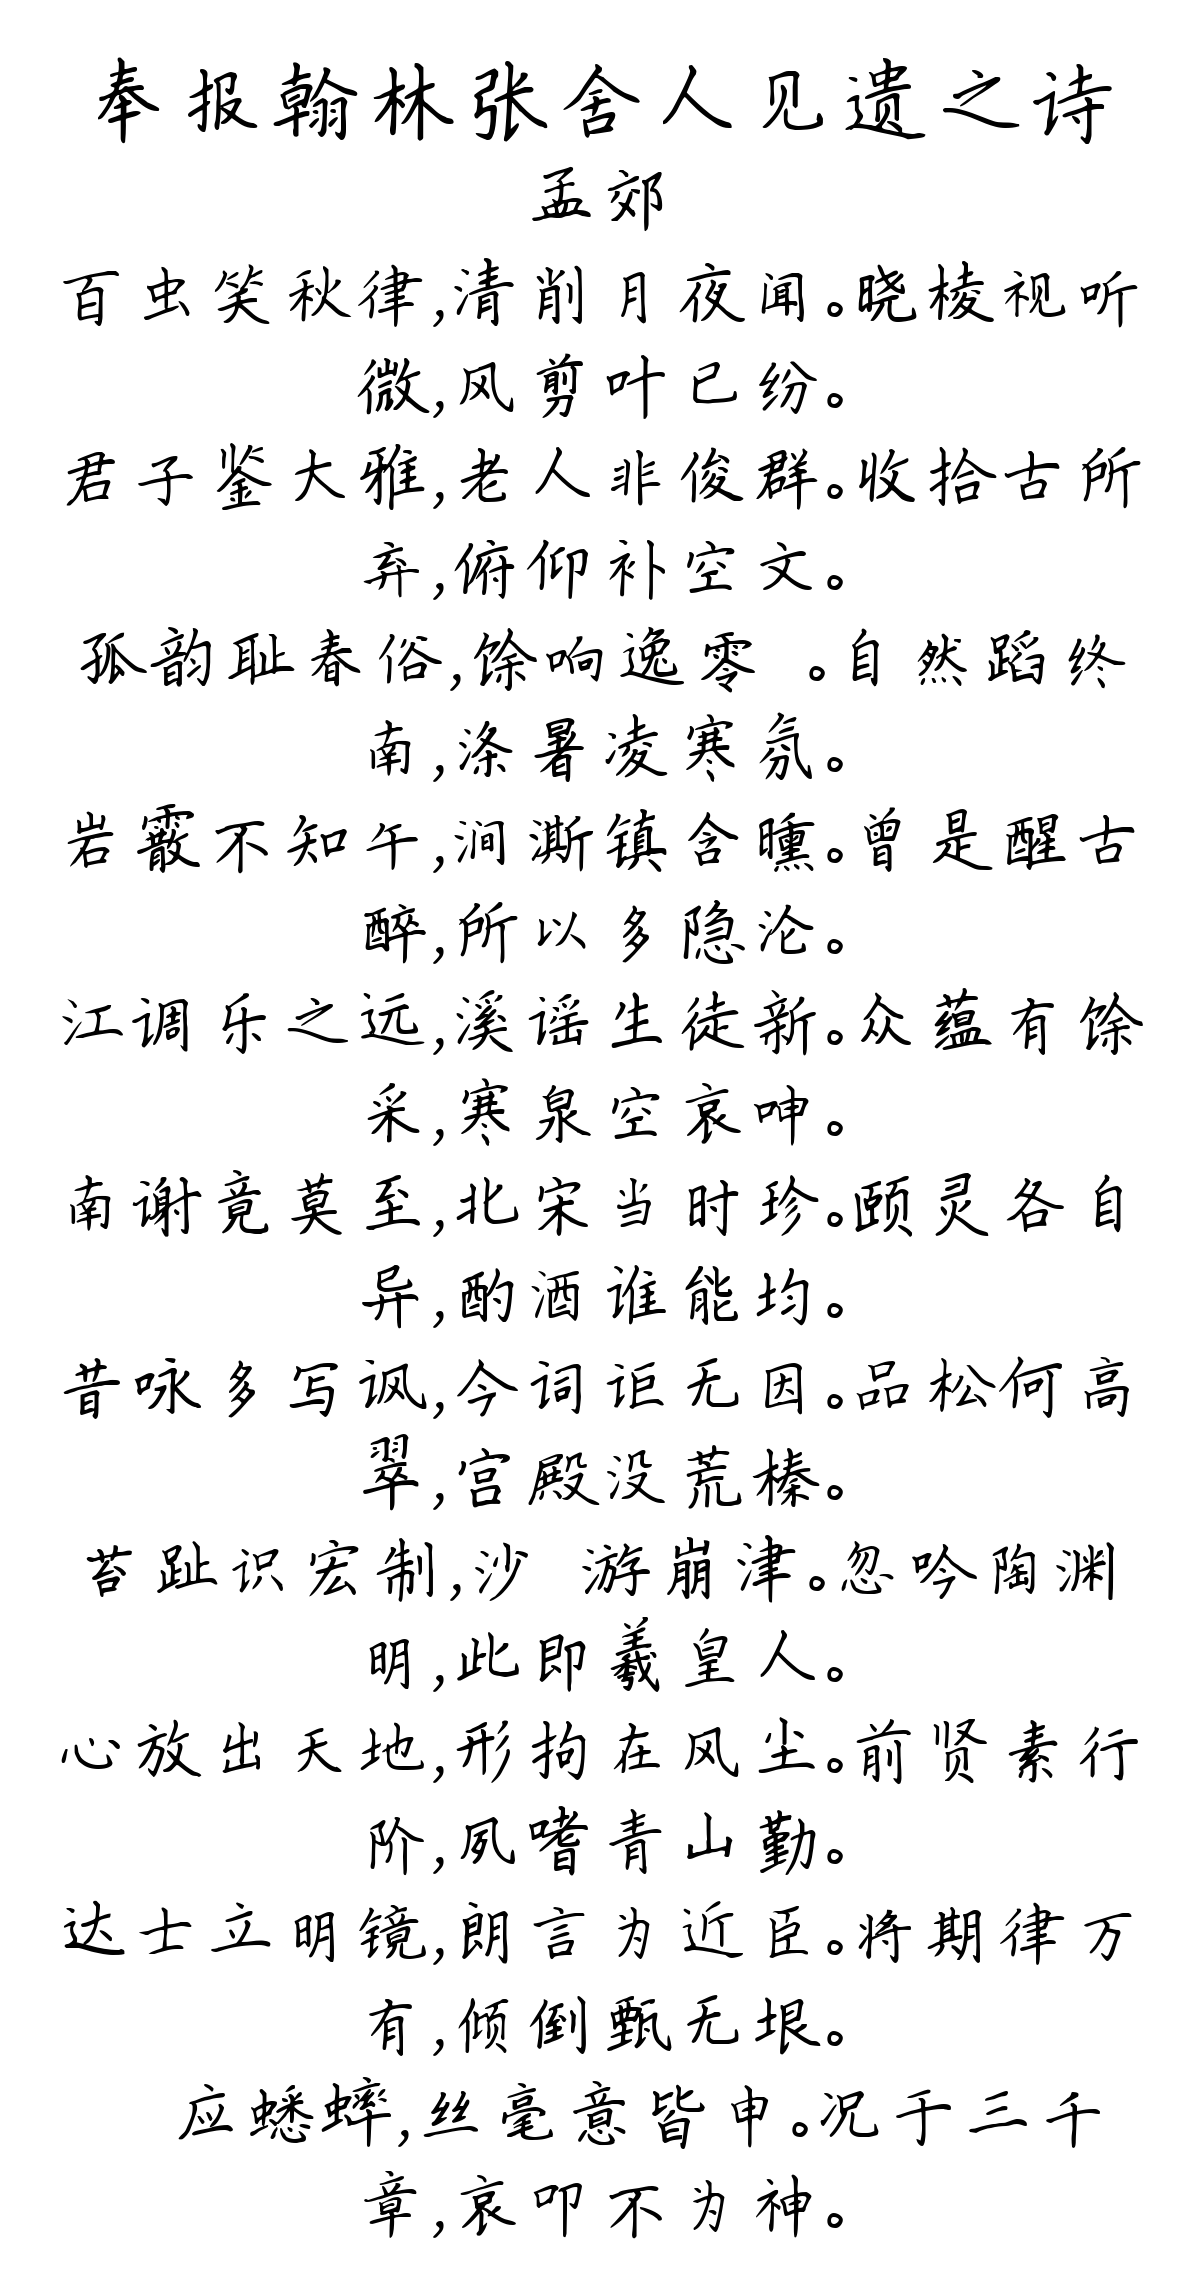 奉报翰林张舍人见遗之诗
孟郊
百虫笑秋律,清削月夜闻。晓棱视听
微,风剪叶已纷。
君子鉴大雅,老人非俊群。收拾古所
弃,俯仰补空文。
孤韵耻春俗,馀响逸零 。自然蹈终
南,涤暑凌寒氛。
岩霰不知午,涧澌镇含曛。曾是醒古
醉,所以多隐沦。
江调乐之远,溪谣生徒新。众蕴有馀
采,寒泉空哀呻。
南谢竟莫至,北宋当时珍。颐灵各自
异,酌酒谁能均。
昔咏多写讽,今词讵无因。品松何高
翠,宫殿没荒榛。
苔趾识宏制,沙 游崩津。忽吟陶渊
明,此即羲皇人。
心放出天地,形拘在风尘。前贤素行
阶,夙嗜青山勤。
达士立明镜,朗言为近臣。将期律万
有,倾倒甄无垠。
应蟋蟀,丝毫意皆申。况于三千
章,哀叩不为神。